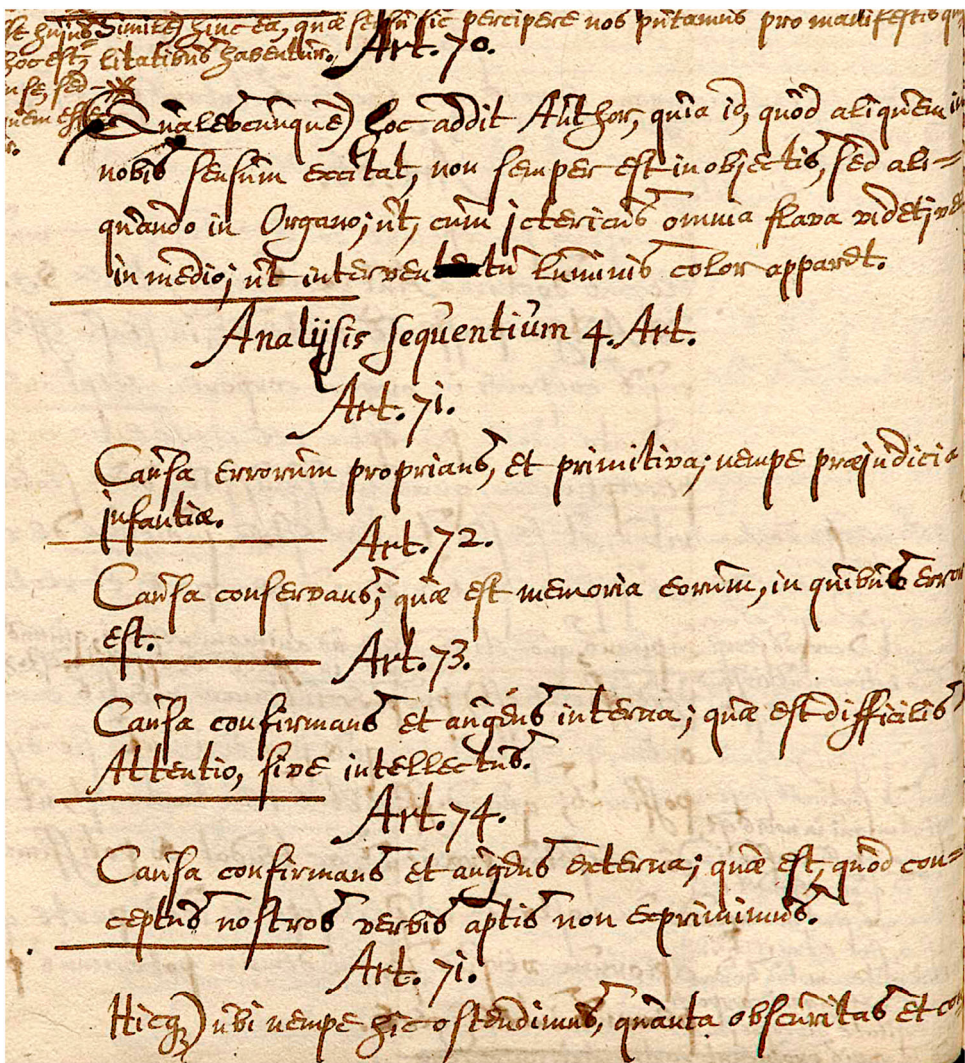 se hujus similes) hinc ea, quæ sensu sic percipere nos putamus pro manifestis
hoc est, litatibus habentur. Art. 70.
in se, sed
Qualescunque) hoc addit Author, quia id, quod aliquem in
nobis sensum excitat, non semper est in objectis, sed ali=
quando in Organo; ut, cum ictericus omnia flava videt; vel
in medio; ut interventu luminis color apparet.
Analysis sequentium 4. Art.
Art. 71.
Causa errorum proprians, et primitiva; nempe præjudicia
infantiæ.
Art. 72.
Causa conservans; quæ est memoria eorum, in quibus error
est.
Art. 73.
Causa confirmans et augens interna; quæ est difficilis
Attentio, sive intellectus.
Art. 74.
Causa confirmans et augens externa; quæ est, quod con=
ceptus nostros verbis aptis non exprimimus.
Art. 71.
Hicq3) ubi nempe hic ostendimus, quanta obscuritas et